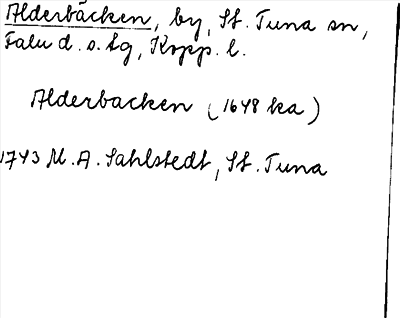 Alderbäcken, by, St. Tuna sn,
Falu d. s. lg, Kopp. l.
Alderbacken (1648 ka)
1743 M. A. Sahlstedt, St. Tuna